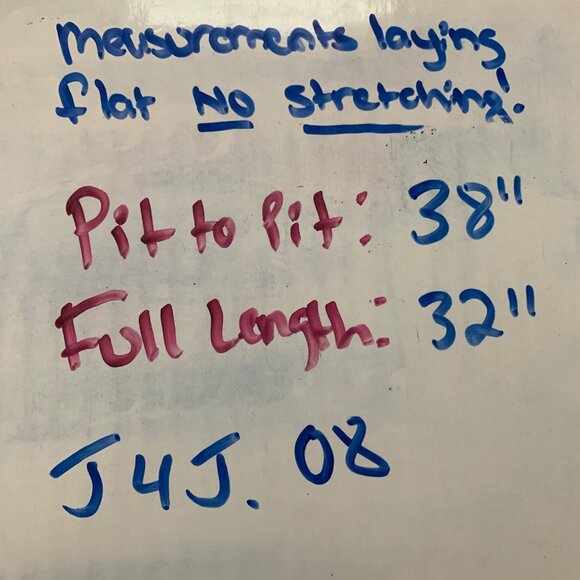 measurements laying
flat NO stretching!
Pit to Pit: 38"
Full Length: 32"
J4J. 08